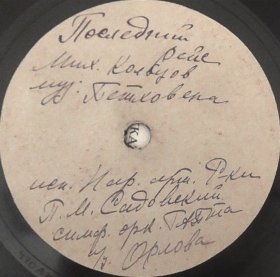 Последний
рейс
Мих. Колбуов
муз: Бетховена
КА
исп. Нар. арт. Р-ки
П. М. Садовский
симф. орк. ГАБТа
п/у. Орлова